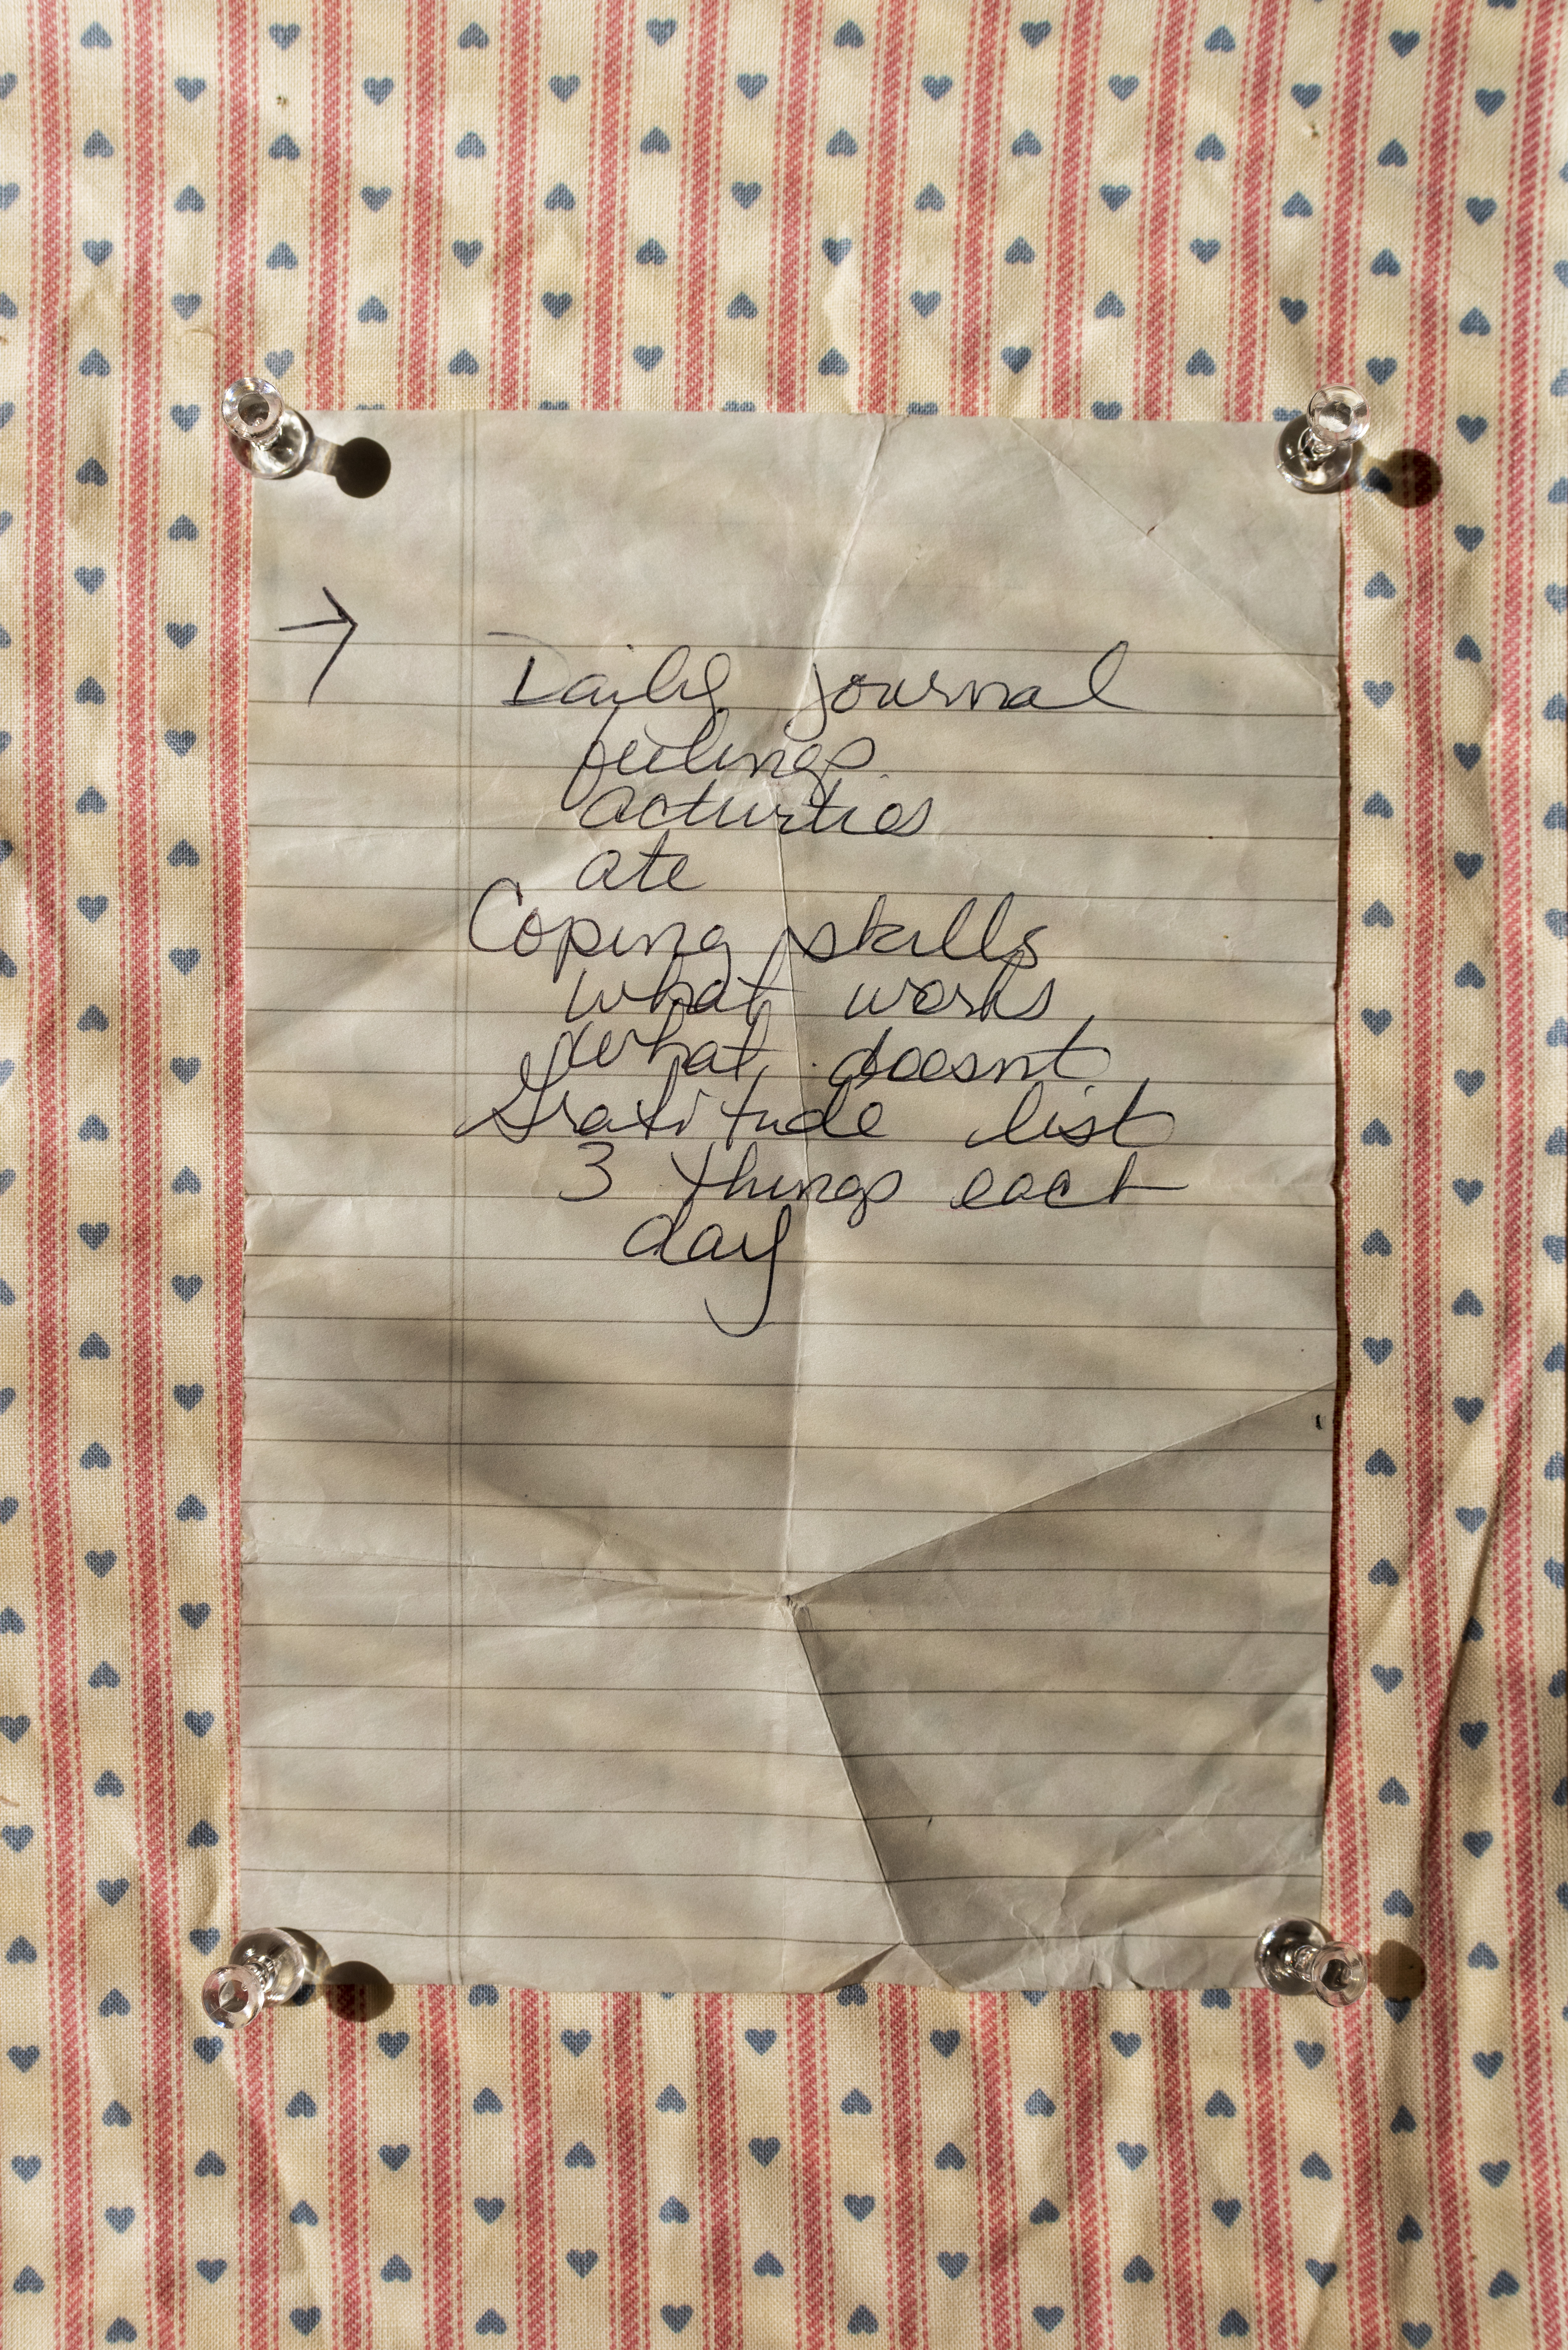 → Daily journal
feelings
activities
ate
Coping skills
what works
what doesnt
Gratitude list
3 things each
day